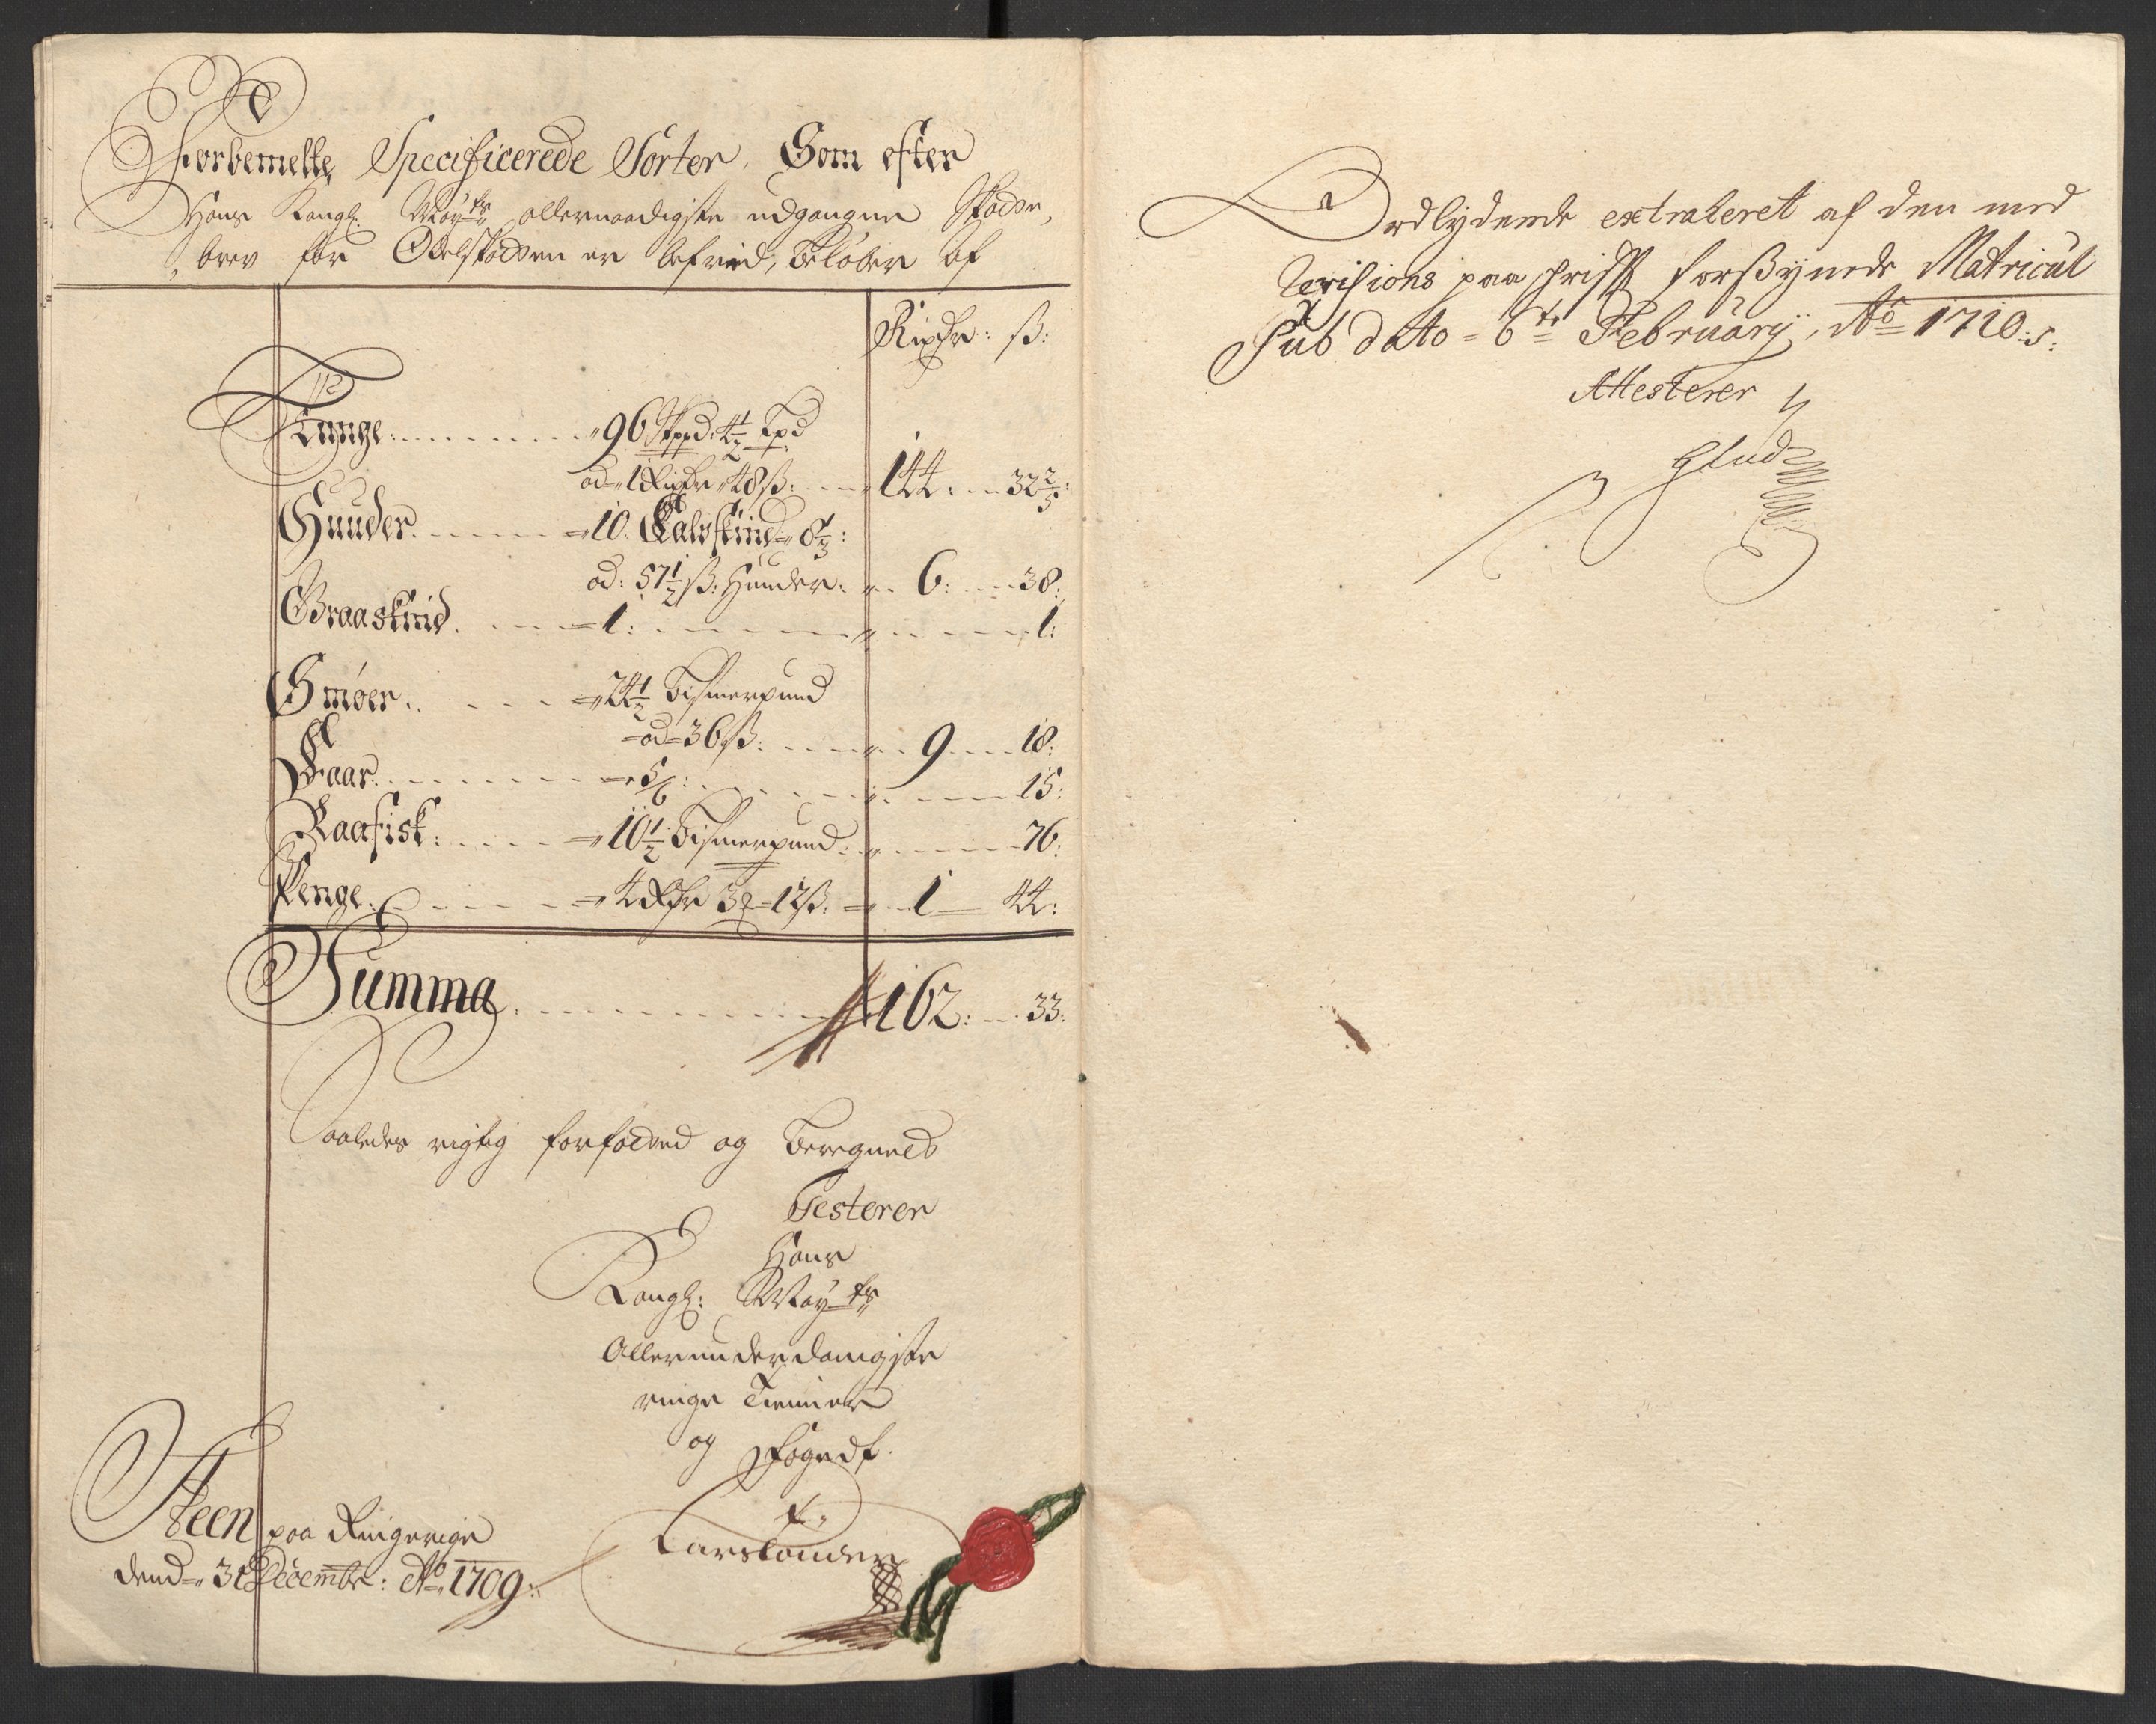 Forbemelte Specificerede Sorter, Som efter
Hans Kongl: May:ts allernaadigste udgangne Skatte,
brev for Odelskatten er befried, Beløber af
Rixdr: ß:
Tunge: 96 Skpd: 4 1/2 Lpd
ad 1 Rixdr 48 ß: 144: 32 2/5:
Huuder 10. Kalvskind 8 1/3:
ad: 57 1/2 ß: Huuden: 6: 38:
Graaskind. 1: 1:
Smøer. 24 1/2 Bismerpund
ad 36 ß: 9 18:
Faar. 5/6: 15:
Raafisk: 10 1/2 Bismerpund: 76:
Penge. 4 Rdr 3 12 ß: 1 44:
Summa. 162: 33:
Saaledes rigtig forfatted og Beregned
Testerer
Hans
Kongl: May:ts
Allerunderdanigste
ringe Tienner
og Fogedt.
Steen paa Ringerige
dend 31 Decembr: Ao 1709:
Ordlydende extraheret af den med
Revisions paaschrifft forsßynede Matricul
Sub dato 6te February, Ao 1710:
Attesterer
Glud